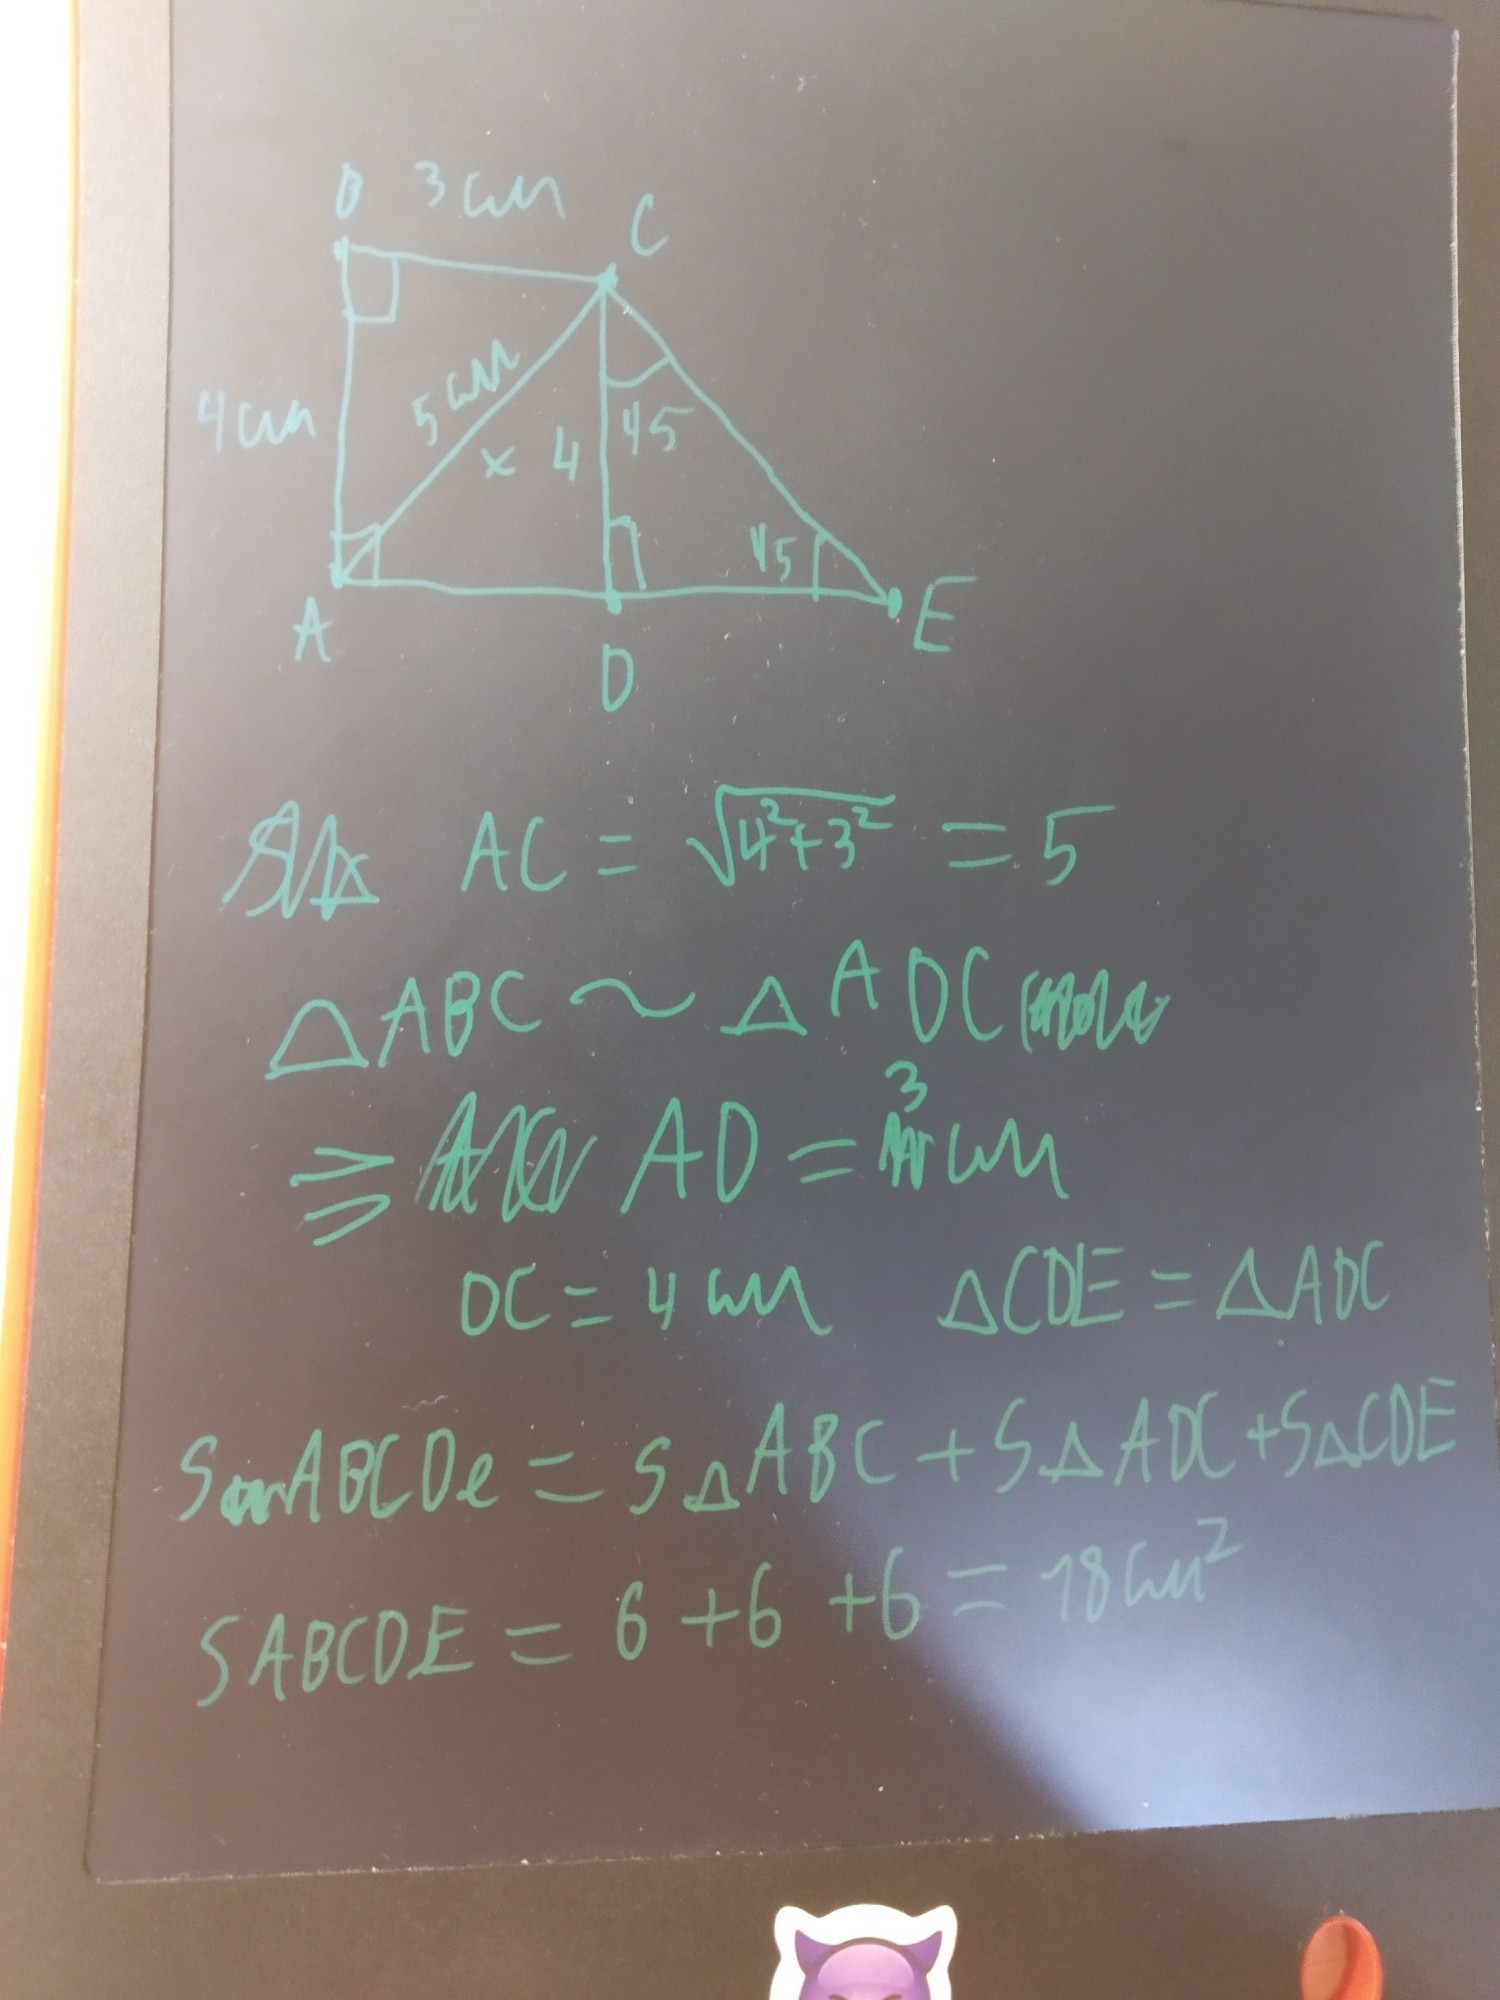 B 3 см C
4 см 5 см x 4 45 45
A D E
AC = √4²+3² = 5
△ABC ~ △ADC
=> AD = 3 см
DC = 4 см △CDE = △ADC
S ABCDe = S△ABC + S△ADC + S△CDE
SABCDE = 6 + 6 + 6 = 18 см²